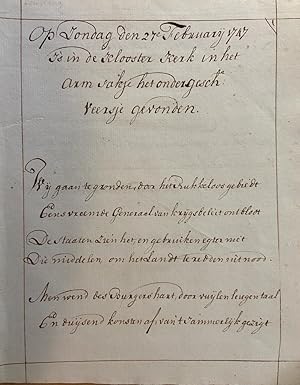 Op Zondag den 27e February 1747
Is in de Klooster Kerk in het
Arm sakje het ondergesch:
Veersje gevonden.
Wij gaan te gronden, door het Rukkeloos gebiedt
Eens vreemde Generaal van krijgsbeliet ontbloot
De Staaten zien het, en gebruiken egter niet
Die middelen, om het Landt te redden uit nood.
Men wend des Burgers hart, door vuijlen leugen taal
En duijsend konsten af van't Jammerlijk gezigt